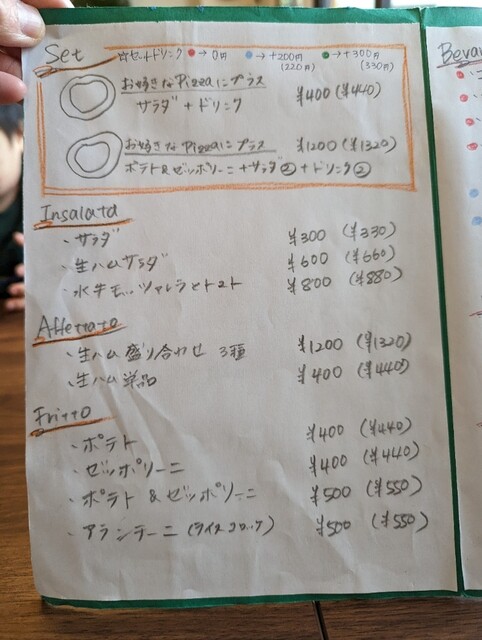 Set ☆セットドリンク ●→0円 ●→+200円 ●→+300円
(220円) (330円)
お好きなPizzaにプラス
サラダ + ドリンク ¥400 (¥440)
お好きなPizzaにプラス ¥1200 (¥1320)
ポテト&ゼッポリーニ+サラダ②+ドリンク②
Insalata
・サラダ ¥300 (¥330)
・生ハムサラダ ¥600 (¥660)
・水牛モッツァレラとトマト ¥800 (¥880)
Affettato
・生ハム盛り合わせ 3種 ¥1200 (¥1320)
・生ハム単品 ¥400 (¥440)
Fritto
・ポテト ¥400 (¥440)
・ゼッポリーニ ¥400 (¥440)
・ポテト&ゼッポリーニ ¥500 (¥550)
・アランチーニ (ライスコロッケ) ¥500 (¥550)
Bevan